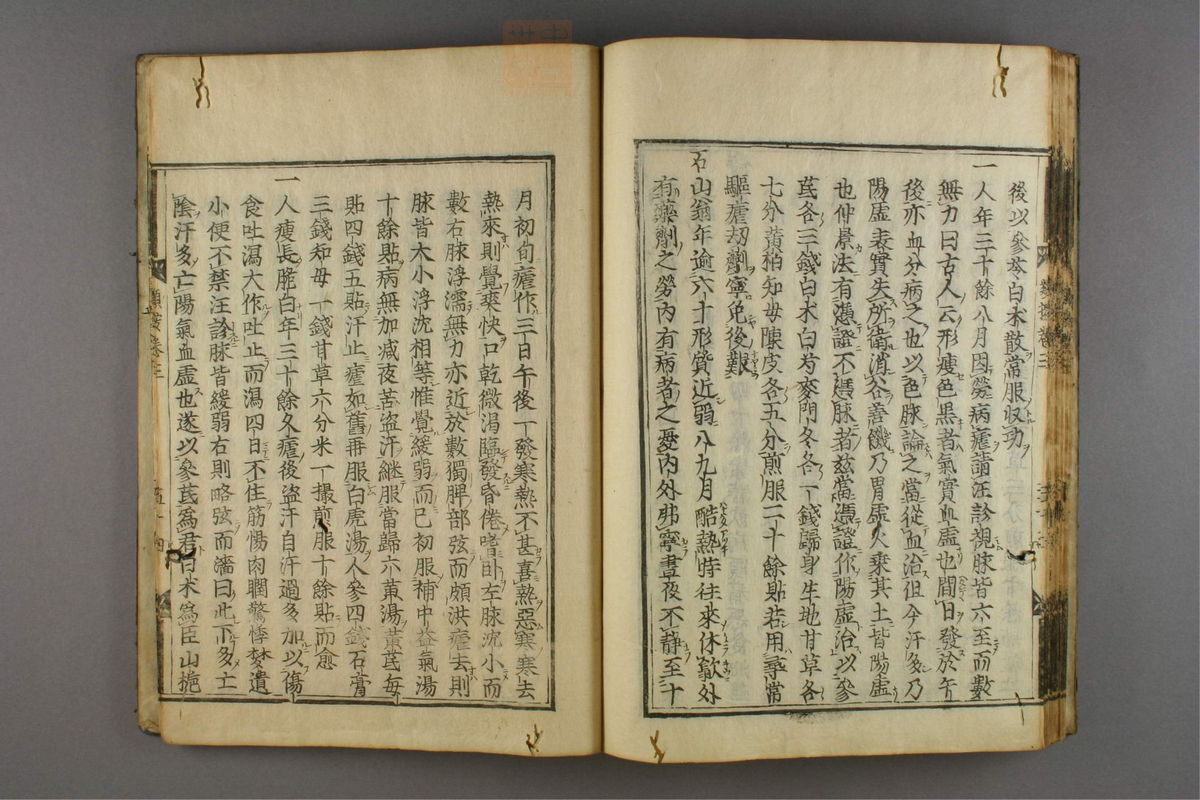 後以參苓白朮散常服収功
一人年三十餘八月因勞病瘧請汪診視脉皆六至而數
無力曰古人云形瘦色黑者氣實血虛也間日發於午
後亦血分病之也以色脉論之當從血治但今汗多乃
陽虛表實失所衛消谷善饑乃胃虛火乗其土皆陽虛
也仲景法有憑證不憑脉者茲當憑證作陽虛治以參
茋各三錢白朮白芍麥門冬各一錢歸身生地甘草各
七分黃柏知母陳皮各五分煎服二十餘貼若用尋常
驅瘧刼劑寧免後艱
石山翁年逾六十形質近弱八九月酷熱時往來休歙外
有藥劑之勞内有病者之憂内外弗寧晝夜不静至十
月初旬瘧作三日午後一發寒熱不甚喜熱惡寒寒去
熱來則覺爽快口乾微渴臨發昏倦嗜卧左脉沈小而
數右脉浮濡無力亦近於數獨脾部弦而頗洪瘧去則
脉皆大小浮沈相等惟覺緩弱而已初服補中益氣湯
十餘貼病無加减夜苦盜汗継服當歸六黃湯黃茋每
貼四錢五貼汗止瘧如舊再服白虎湯人參四錢石膏
三錢知母一錢甘草六分米一撮煎服十餘貼而愈
一人瘦長脆白年三十餘久瘧後盜汗自汗過多加以傷
食吐瀉大作吐止而瀉四日不住筋惕肉瞤驚悸梦遺
小便不禁汪診脉皆緩弱右則略弦而濇曰此下多亡
陰汗多亡陽氣血虛也遂以參茋為君白朮為臣山梔